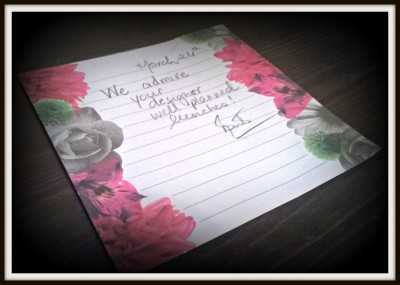 March, 24th
We admire
your
designer
well planned
lunches!